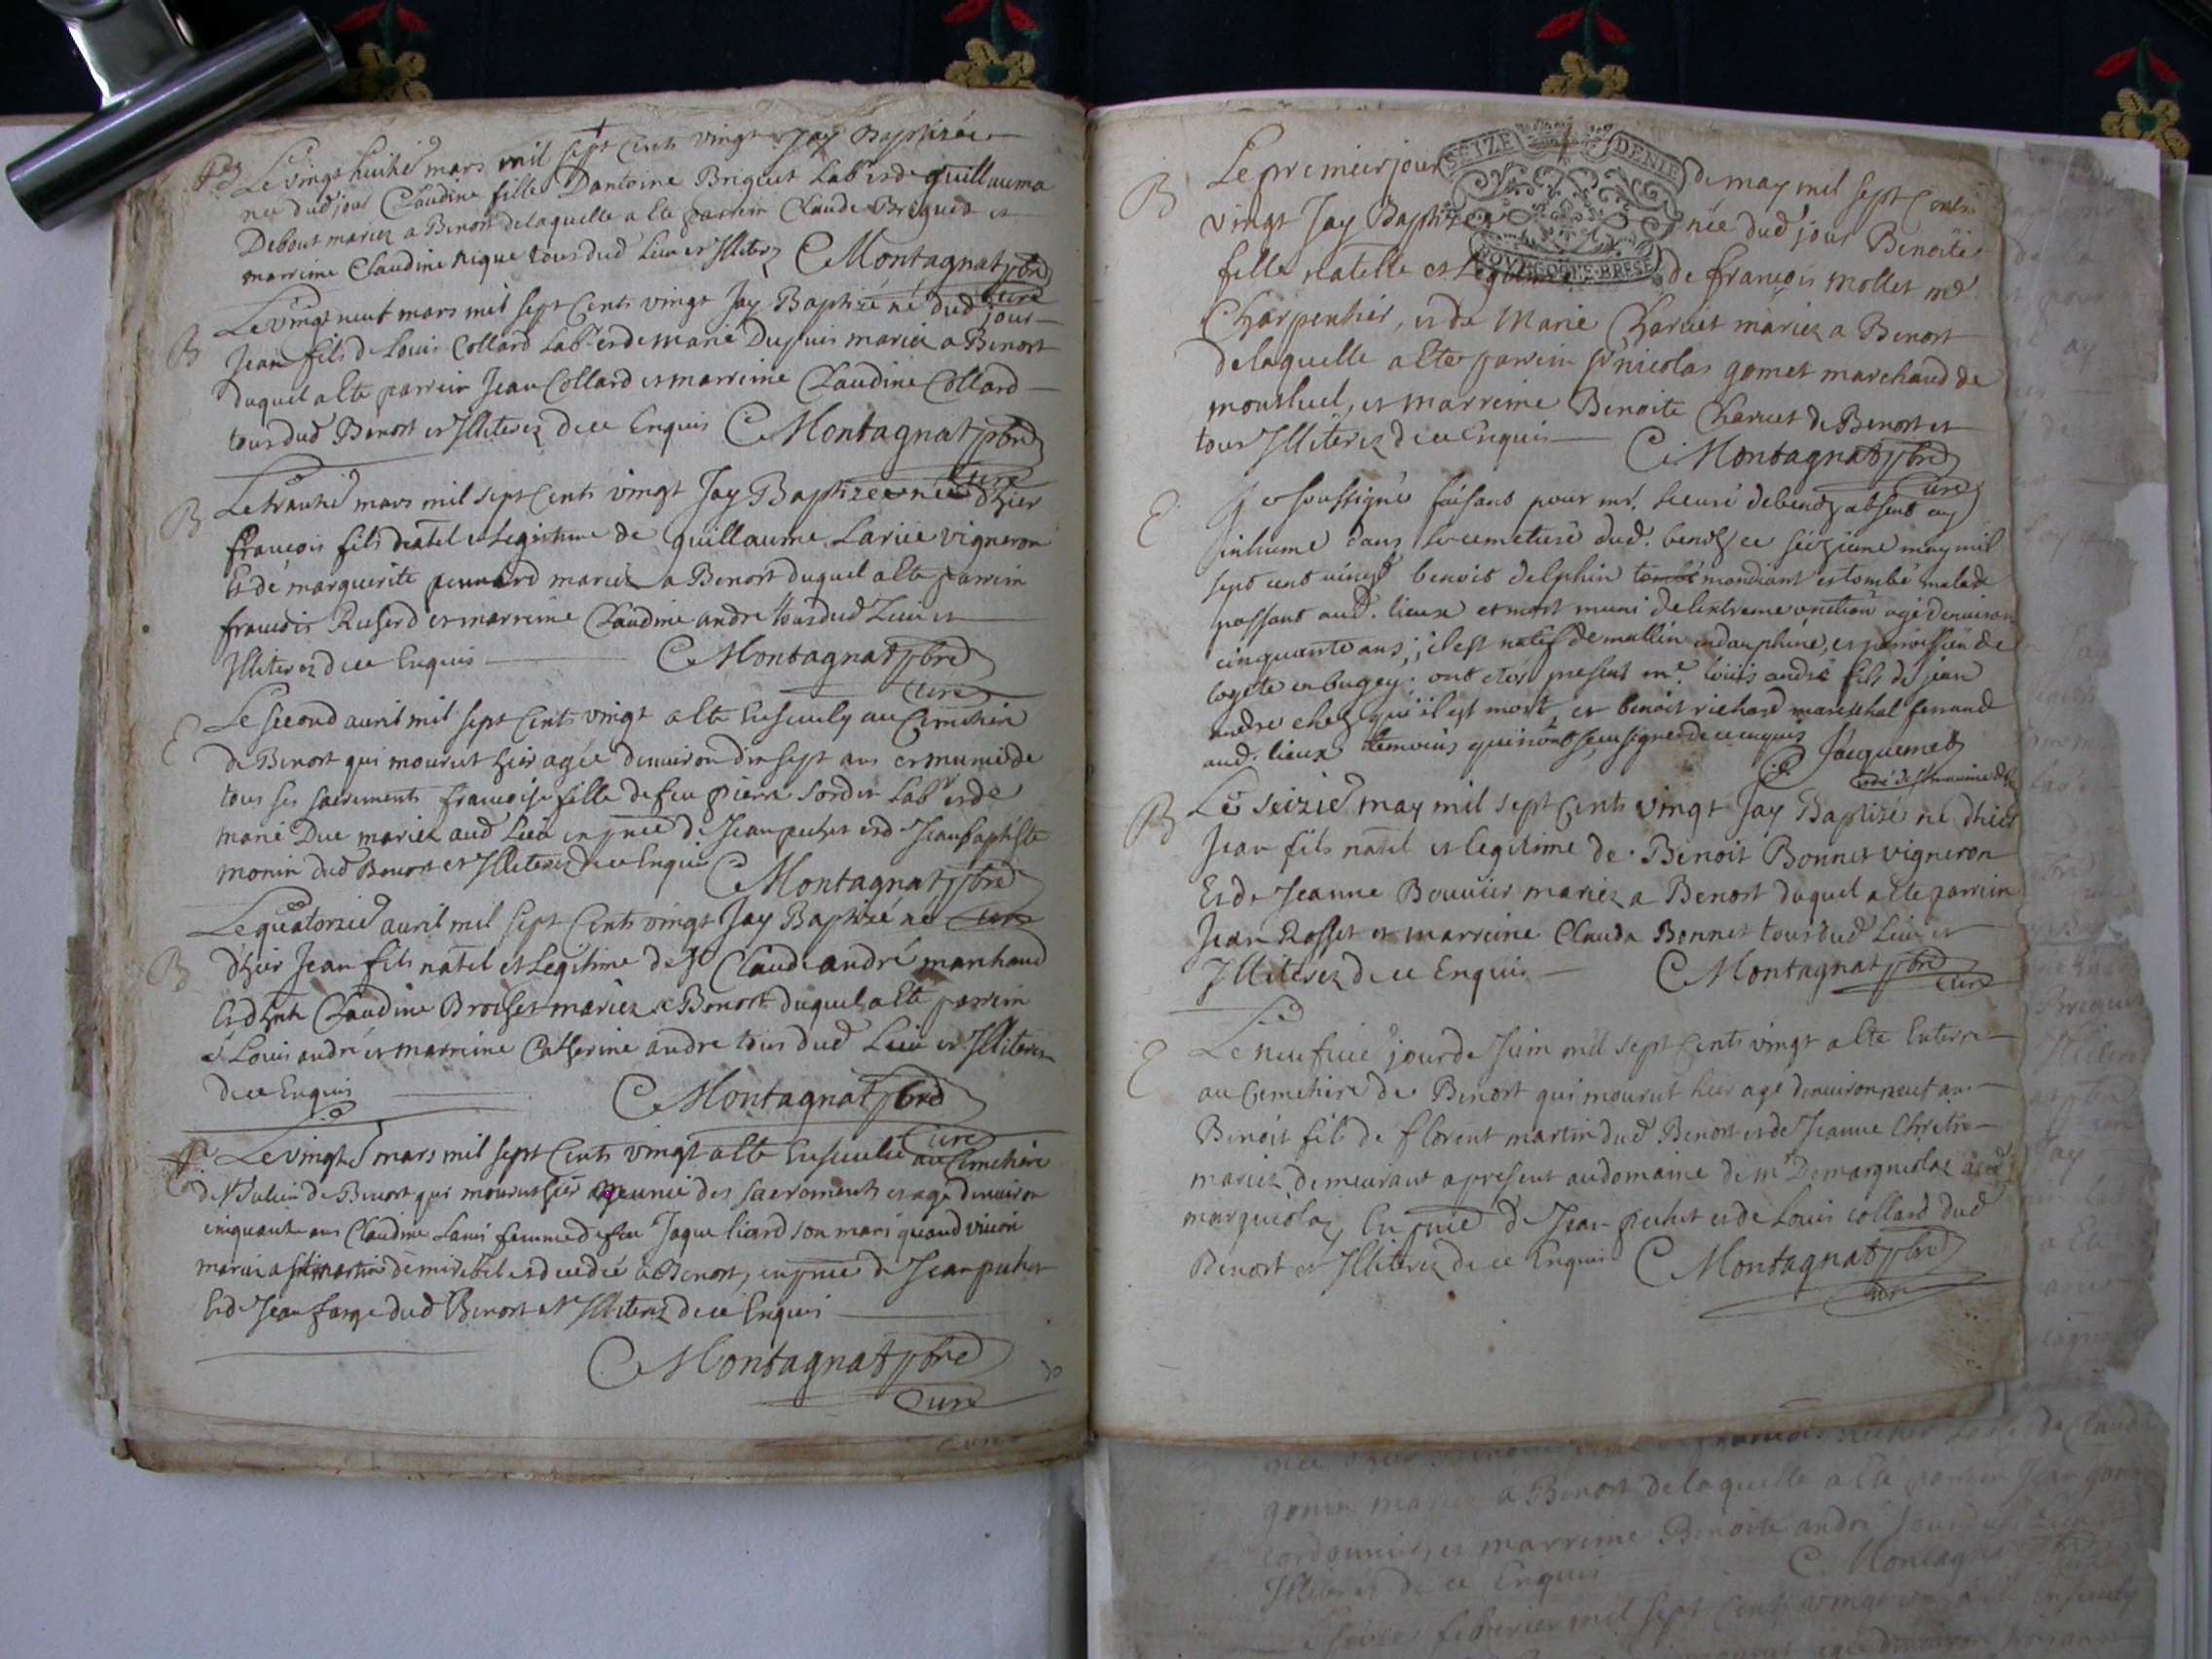 Le vingt huitie mars mil sept Cents vingt Jay Baptizée
née dud jour Claudine fille Dantoine Briguet Lab. et de guillauma
Debout mariez a Benost delaquelle a Ete parrein Claude Briguet et
marreine Claudine nique tous dud Lieu et Illiterz C Montagnat pbre
Curé
B
Le vingt neuf mars mil sept Cents vingt Jay Baptizé né dud jour
Jean fils de Louis Collard Lab. et de marie Dupuis mariez a Benost
duquel a Ete parrein Jean Collard et marreine Claudine Collard
tous dud Benost et Illiterez de ce Enquis C Montagnat pbre
Curé
B
Le trantie mars mil sept Cents vingt Jay Baptizé né dhier
francois fils natel et Legitime de guillaume Larüe vigneron
Et de marguerite mariez a Benost duquel a Ete parrein
francois et marreine Claudine andre tous dud Lieu et
Illiterez de ce Enquis C Montagnat pbre
Curé
E
Le second avril mil sept Cents vingt a Ete Ensevely au Cimetiere
de Benost qui mourut hier agée denviron dix sept ans et munie de
tous ses sacrements francoise fille de feu pierre Sordet Lab. et de
marie Duc mariez aud Lieu en pnce de Jean pechet et d Jean baptiste
monin dud Benost et Illiterez de ce Enquis C Montagnat pbre
Curé
B
Le quatorzie avril mil sept Cents vingt Jay Baptizé né
dhier Jean fils natel et Legitime de Sr Claude andré marchand
Et d hte Claudine Brosset mariez a Benost duquel a Ete parrein
Sr Louis andré et marreine Catherine andre tous dud Lieu et Illiterez
de ce Enquis C Montagnat pbre
Curé
Le vingt mars mil sept Cents vingt a Ete Ensevelie au Cimetiere
de St Julien de Benost qui mourut hier munie des sacrements et age denviron
cinquante ans Claudine Lanis femme de feu Jaque liard son mari quand vivoit
mariez a St martin de miribel et decedée a Benost, en pnce de Jean pechet
Et d Jean farge dud Benost et Illiterez de ce Enquis
C Montagnat pbre
Curé
SEIZE DENIE
BOURGOGNE BRESE
B
Le premier jour de may mil sept Cents
vingt Jay Baptizé née dud jour Benoite
fille natelle et Legitime de francois mollet me
Charpentier, et de Marie Charvet mariez a Benost
delaquelle a Ete parrein Sr nicolas gomet marchand de
montluel, et marreine Benoite Charvet de Benost et
tous Illiterez de ce Enquis C Montagnat pbre
Curé
E
Je soussigné faisant pour mr. le curé de benost absent ay
inhumé dans le cimetiere dud. benost ce seizieme may mil
sept cent vingt benoit delphin tombé mandiant et tombé malade
passant aud. lieux et mort muni de lextreme onction agé denviron
cinquante ans; il est natif de mallin en dauphiné, et paroissien de
logete en bugey; ont étés present mr. loüis andré fils de jean
andre chez qui il est mort et benoit richard mareschal ferrand
aud. lieux temoins qui nont sceu signer de ce enquis
Jacquemet
curé de St maurice
B
Le seizie may mil sept Cents vingt Jay Baptizé né dhier
Jean fils natel et legitime de Benoit Bonnet vigneron
Et de Jeanne Bouvier mariez a Benost duquel a Ete parrein
Jean Rosset et marreine Clauda Bonnet tous dud Lieu et
Illiterez de ce Enquis C Montagnat pbre
Curé
E
Le neufvie jour de Juin mil sept Cents vingt a Ete Enterre
au Cimetiere de Benost qui mourut hier age denviron neuf ans
Benoit fils de florent martin dud Benost et de Jeanne Chretin
mariez demeurant a present au domaine de mr Demargniolaz aud
margniolaz, En pnce de Jean pechet et de Louis Collard dud
Benost et Illiterez de ce Enquis C Montagnat pbre
Curé
gonin mariez a Benost delaquelle a Ete parrein Jean
cordonnier, et marreine Benoite andré tous dud Lieu
Illiterez de ce Enquis C Montagnat